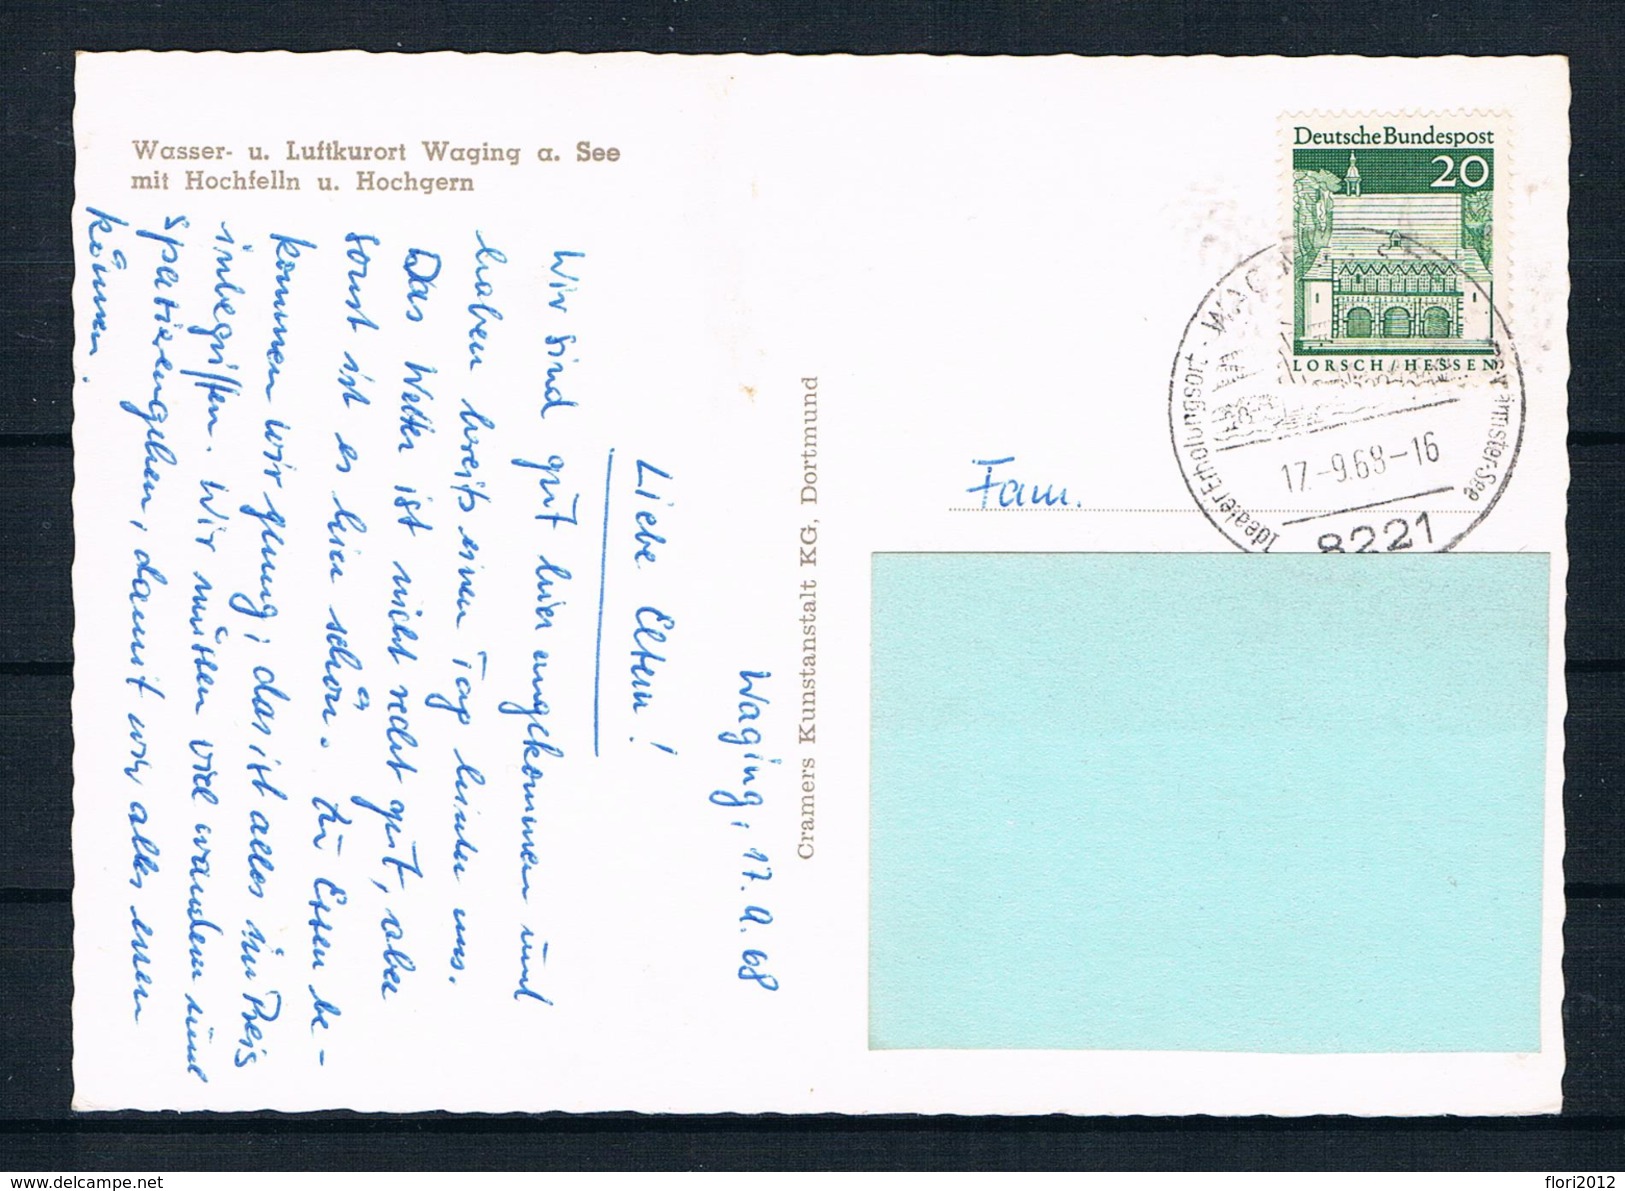 Wasser- u. Luftkurort Waging a. See
mit Hochfelln u. Hochgern
Waging, 17. 9. 68
Liebe Eltern!
Wir sind gut hier angekommen und
haben bereits einen Tag hinter uns.
Das Wetter ist nicht recht gut, aber
sonst ist es hier schön. Zu Essen be-
kommen wir genug, das ist alles im Preis
inbegriffen. Wir müssen viel wandern und
spazierengehen, damit wir alles essen
können.
Cramers Kunstanstalt KG, Dortmund
Deutsche Bundespost
20
LORSCH/HESSEN
Idealer Erholungsort
17.-9.68-16
8221
Fam.
delcampe.net
flori2012